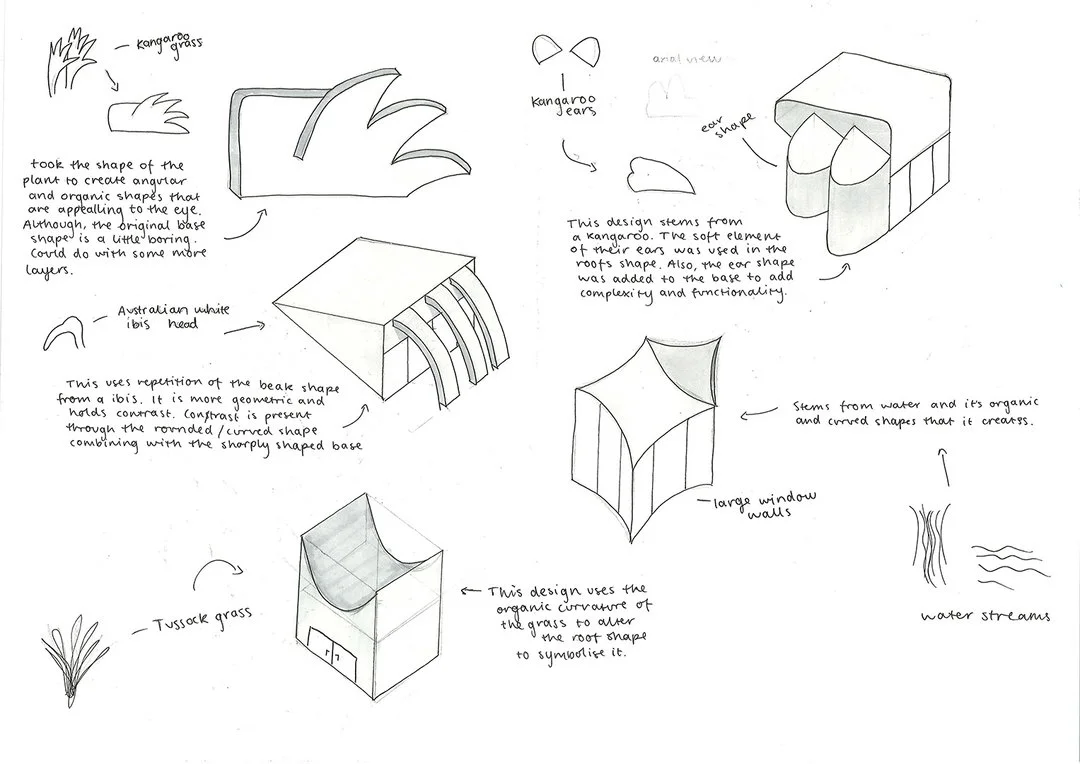 kangaroo
grass
took the shape of the
plant to create angular
and organic shapes that
are appealling to the eye.
Although, the original base
shape is a little boring.
Could do with some more
layers.
Australian white
ibis head
This uses repetition of the beak shape
from a ibis. It is more geometric and
holds contrast. Contrast is present
through the rounded/curved shape
combining with the sharply shaped base
Tussock grass
This design uses the
organic curvature of
the grass to alter
the roof shape
to symbolise it.
Kangaroo
ears
arial view
ear
shape
This design stems from
a kangaroo. The soft element
of their ears was used in the
roofs shape. Also, the ear shape
was added to the base to add
complexity and functionality.
Stems from water and it's organic
and curved shapes that it creates.
large window
walls
water streams